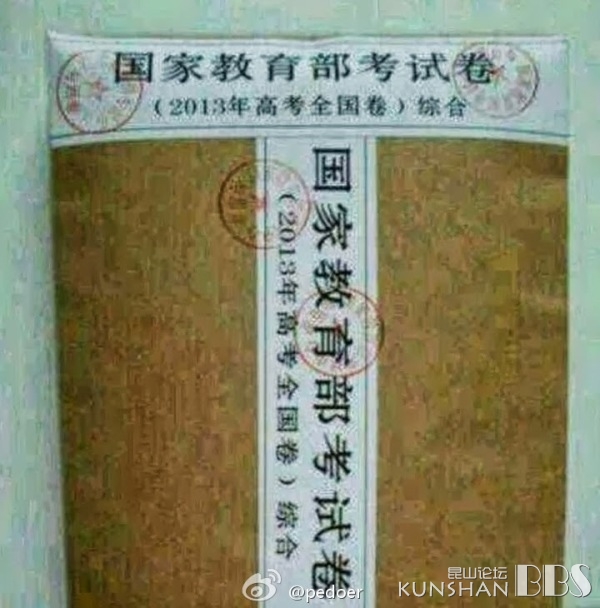 国家教育部考试卷
（2013年高考全国卷）综合
国家教育部考试卷
（2013年高考全国卷）综合
@pedoer
昆山论坛
KUNSHAN BBS